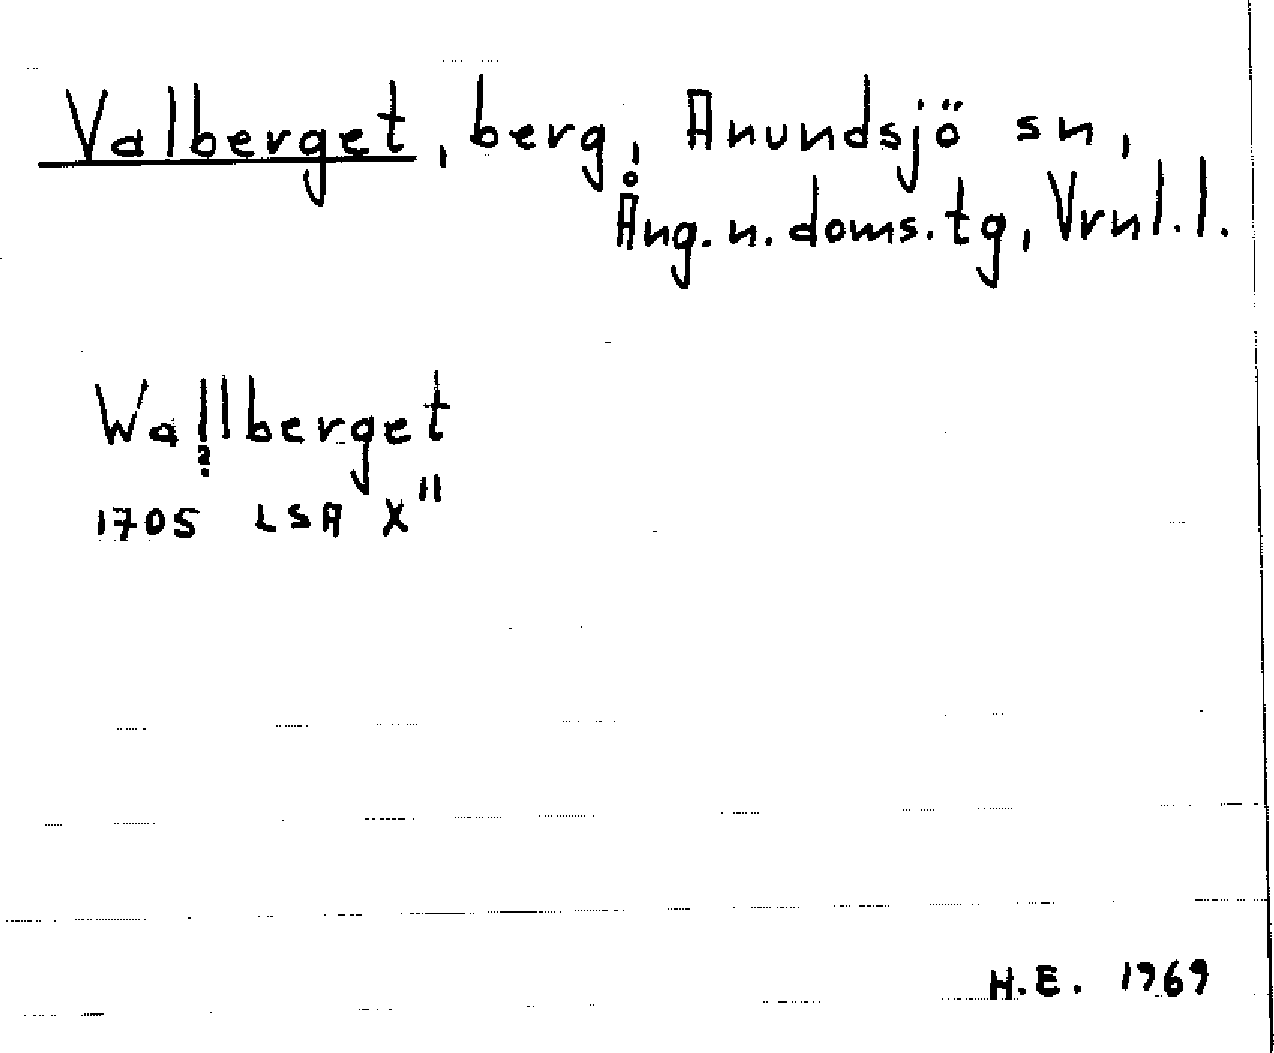 Valberget, berg, Anundsjö sn,
Ång. n. doms. tg, Vrnl. l.
Wallberget
?
1705 LSA X"
H.E. 1969